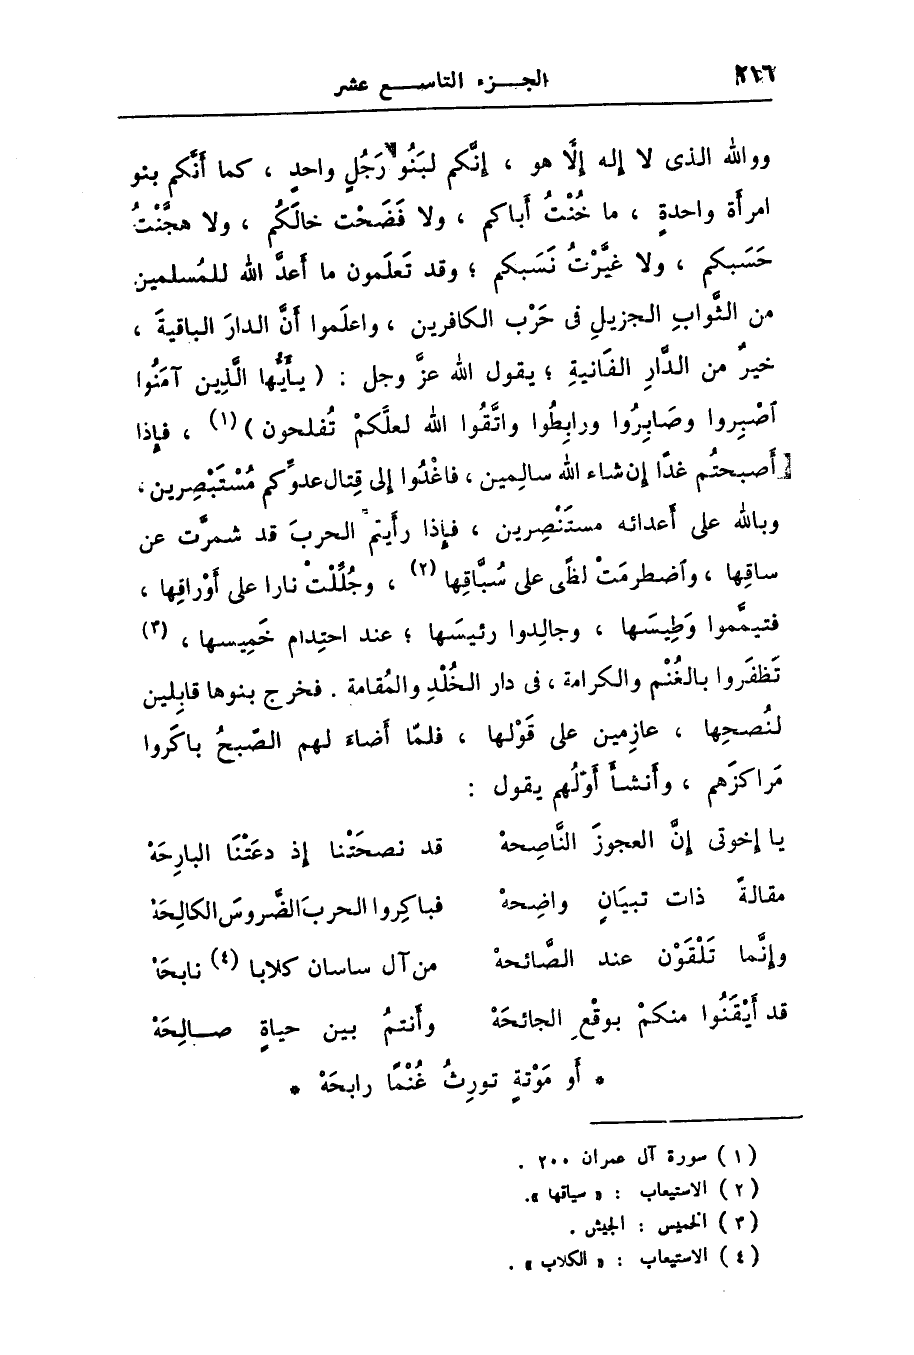 ٢١٦
الجزء التاسع عشر
ووالله الذى لا إله إلَّا هو ، إنَّكم لبَنُو رَجُلٍ واحدٍ ، كما أنَّكم بنو
امرأة واحدةٍ ، ما خُنْتُ أباكم ، ولا فَضَحْت خالَكُم ، ولا هجَّنْتُ
حَسَبكم ، ولا غيَّرْتُ نَسَبكم ؛ وقد تَعلَمون ما أعدَّ الله للمُسلمين
من الثَّوابِ الجزيلِ فى حَرْب الكافرين ، واعلَموا أنَّ الدارَ الباقيةَ ،
خيرٌ من الدَّارِ الفَانيةِ ؛ يقول الله عزَّ وجل : ( يٰأَيُّها الَّذِين آمَنُوا
ٱصْبِروا وصَابِرُوا ورابِطُوا واتَّقُوا الله لعلَّكمْ تُفلحون ) (١) ، فإِذا
أصبحتُم غدًا إن شاء الله سالِمين ، فاغْدُوا إلى قِتال عدوِّكم مُسْتَبْصِرين ،
وبالله على أعدائه مستَنْصِرين ، فإِذا رأيتم الحربَ قد شمرَّت عن
ساقِها ، وٱضطرمَتْ لظًى على سُبَّاقِها (٢) ، وجُلِّلتْ نارا على أوْراقِها ،
فتيمَّموا وَطِيسَها ، وجالِدوا رئيسَها ؛ عند احتِدام خَمِيسها ، (٣)
تَظفَروا بالغُنْم والكرامة ، فى دار الخُلْدِ والمُقامة . فخرج بنوها قابِلين
لنُصحِها ، عازِمين على قَوْلها ، فلمَّا أضاءَ لهم الصّبحُ باكَروا
مَراكزَهم ، وأنشأ أوّلُهم يقول :
يا إخوتى إنَّ العجوزَ النَّاصِحهْ قد نصحَتْنا إذ دعَتْنَا البارِحَهْ
مقالةً ذات تبيَانٍ واضِحهْ فباكِروا الحربَ الضَّروسَ الكالِحَهْ
وإنَّما تَلْقَوْن عند الصَّائحهْ من آل ساسان كلابا (٤) نابحَهْ
قد أيْقَنُوا منكمْ بوقْعِ الجائحَهْ وأنتمُ بين حياةٍ صالِحَهْ
* أو مَوْتةٍ تورِثُ غُنْمًا رابحَهْ *
(١) سورة آل عمران ٢٠٠ .
(٢) الاستيعاب : « سياقها » .
(٣) الخميس : الجيش .
(٤) الاستيعاب : « الكلاب » .